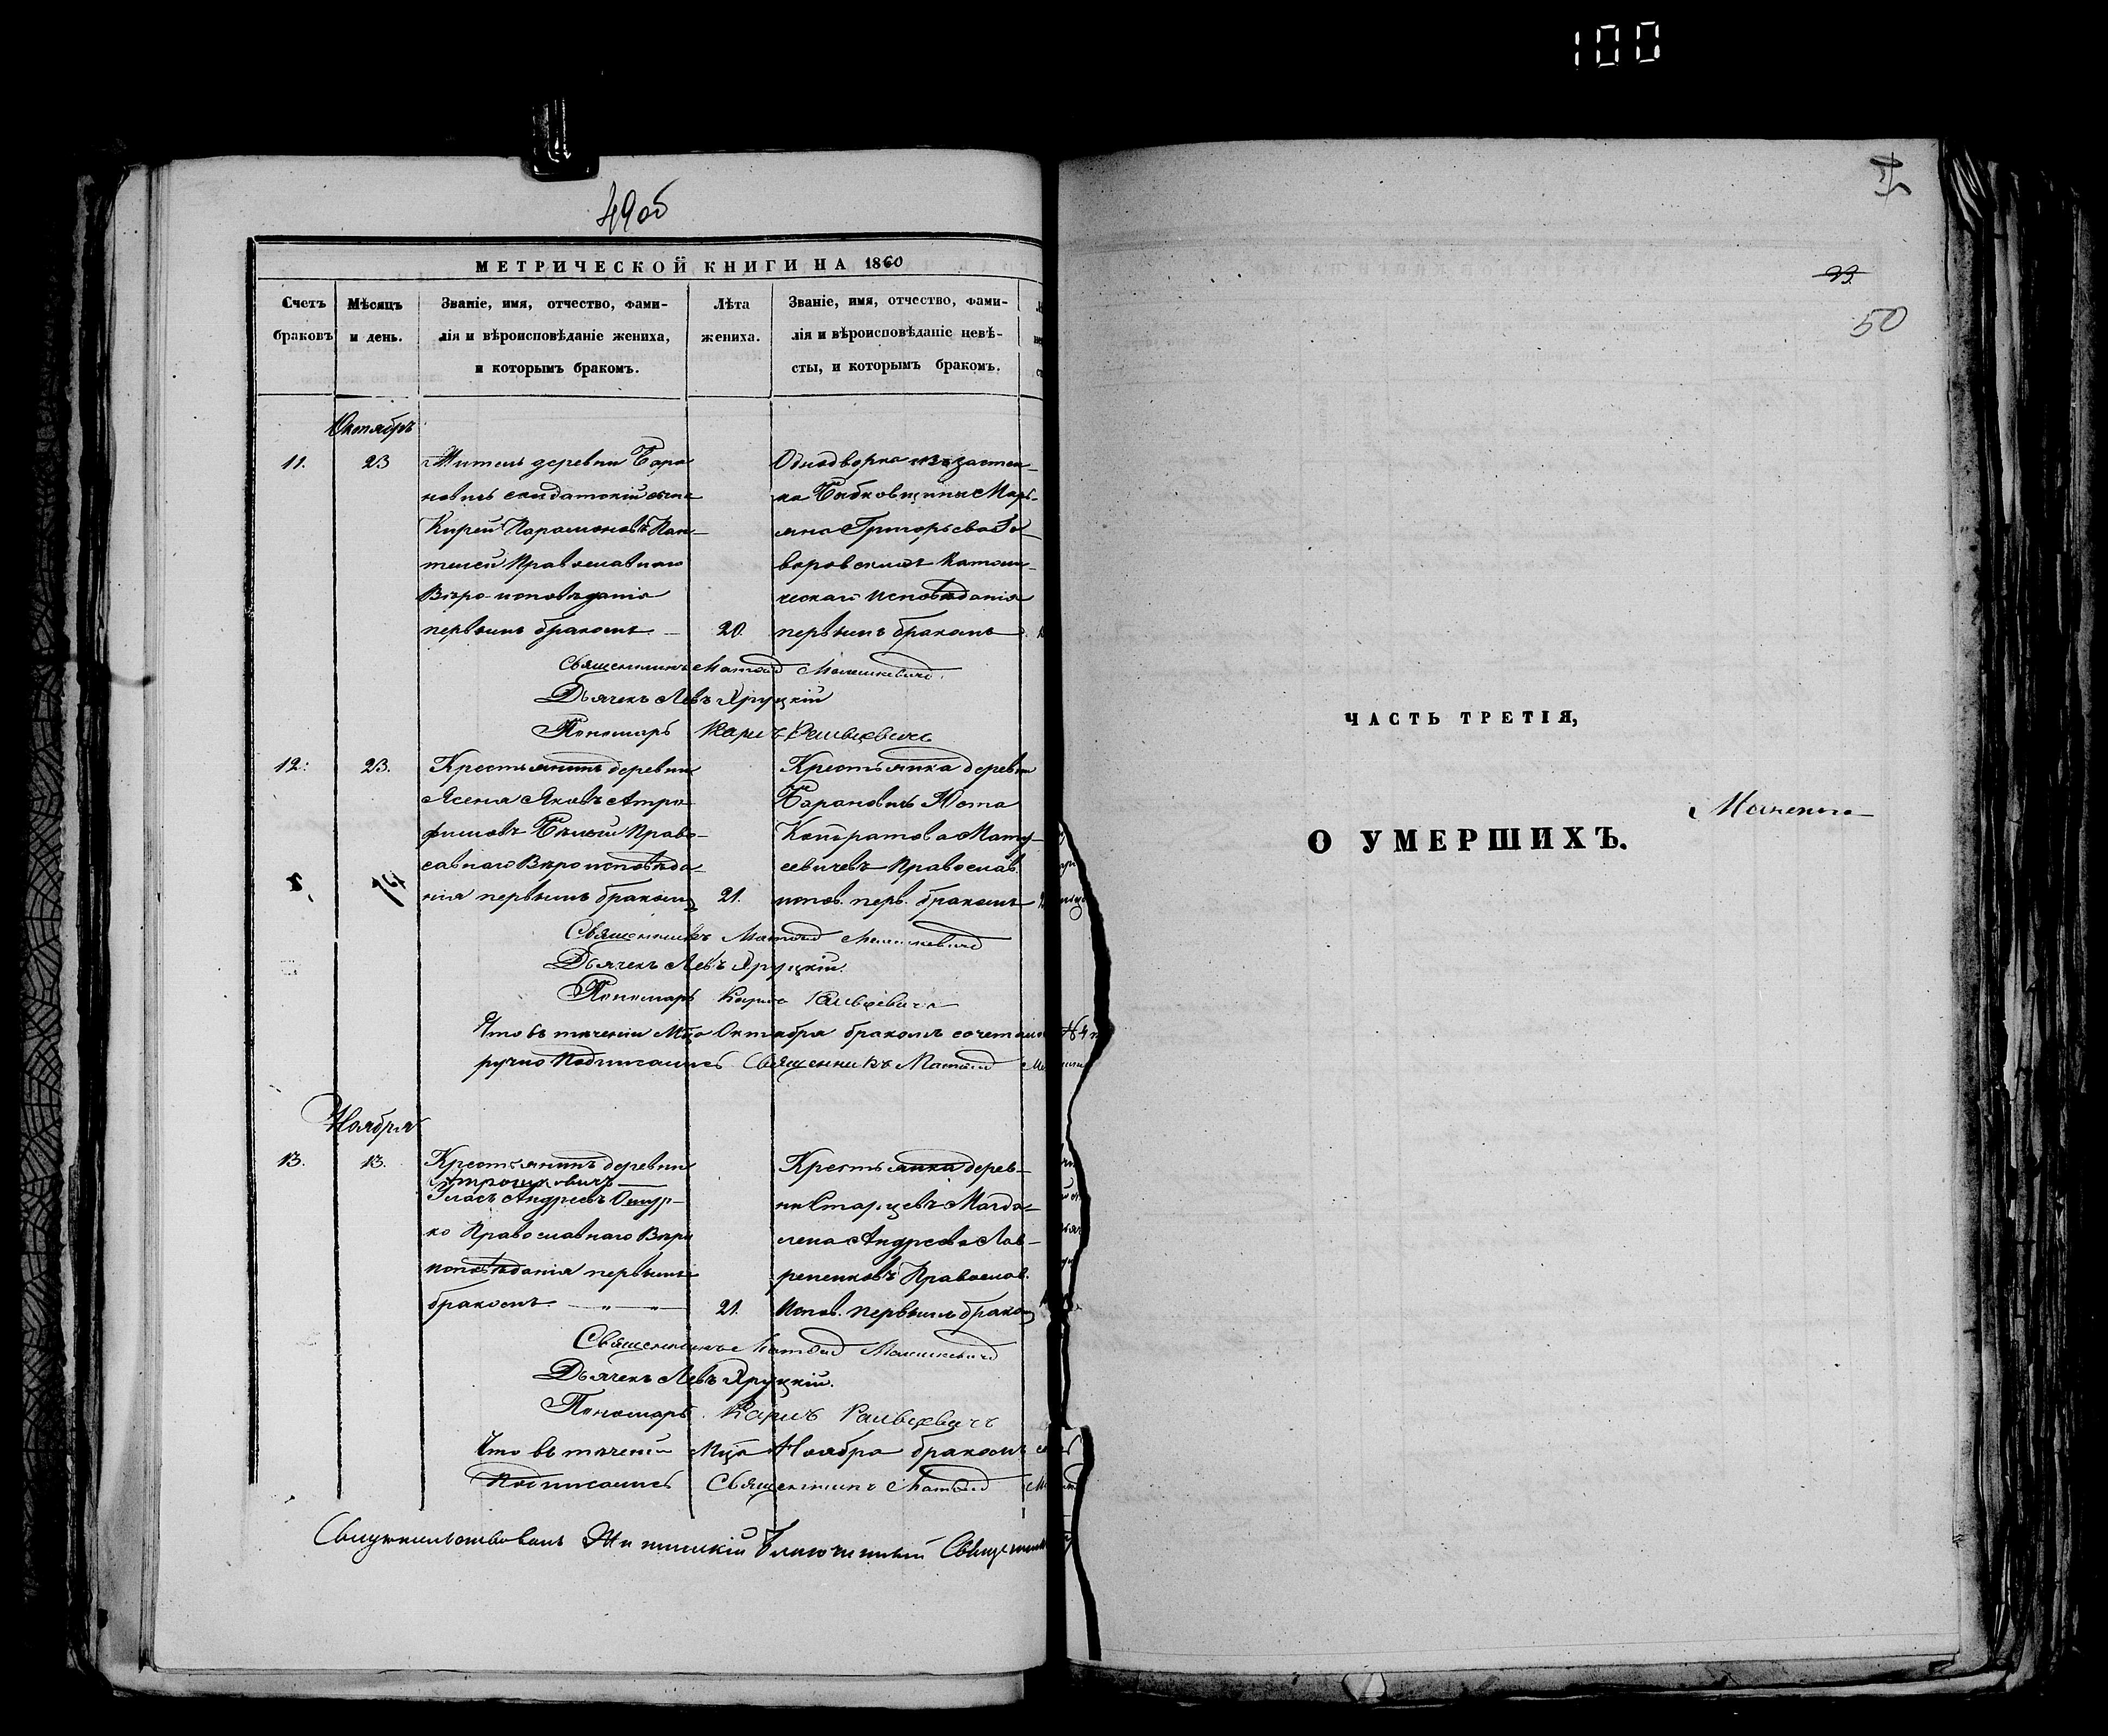 100
49об
МЕТРИЧЕСКОЙ КНИГИ НА 1860
Счетъ браковъ
Мѣсяцъ и день.
Званіе, имя, отчество, фами-
лія и вѣроисповѣданіе жениха,
и которымъ бракомъ.
Лѣта
жениха.
Званіе, имя, отчество, фами-
лія и вѣроисповѣданіе невѣ-
сты, и которымъ бракомъ.
Октябрь
11.
23
Житель деревни Бара
новичъ солдатскій сынъ
Кирей Парамоновъ Пан-
телей Православнаго
Вѣро-исповѣданія
первымъ бракомъ.
20.
Однодворка изъ застен-
ка Бабковщины Марь-
яна Григорьева Го-
воровскихъ Католи-
ческаго исповѣданія
первымъ бракомъ
Священникъ Матвій Малишкевичъ
Дьячекъ Левъ Яруцкій
Пономарь Карпъ
12.
23.
Крестьянинъ деревни
Ясеня Яковъ Атро
фимовъ Бѣлый Право-
славнаго Вѣроисповѣда-
нія первымъ бракомъ
21.
Крестьянка деревни
Барановичъ Юста
Кондратова Мату-
севичевъ Православ.
испов. перв. бракомъ
Священникъ Матвій
Дьячекъ Левъ Яруцкій.
Пономарь Карпъ
Что въ теченіи Мца Октября бракомъ
ручно Подписались Священникъ Матвій
Ноября
13.
13.
Крестьянинъ деревни
Власъ Андреевъ Ошур-
ко Православнаго Вѣро
исповѣданія первымъ
бракомъ. — „ — „ —
21.
Крестьянка дерев-
ни Старцевъ Магда-
лена Андреева Лав-
рененковъ Православ.
Испов. первымъ бракомъ
Священникъ Матвій Малишкевичъ
Дьячекъ Левъ Яруцкій.
Пономарь Карпъ
Что въ теченіи Мца Ноября бракомъ
Подписались Священникъ Матвій
Свидѣтельствовалъ Благочинный Священникъ
50
ЧАСТЬ ТРЕТІЯ,
О УМЕРШИХЪ.